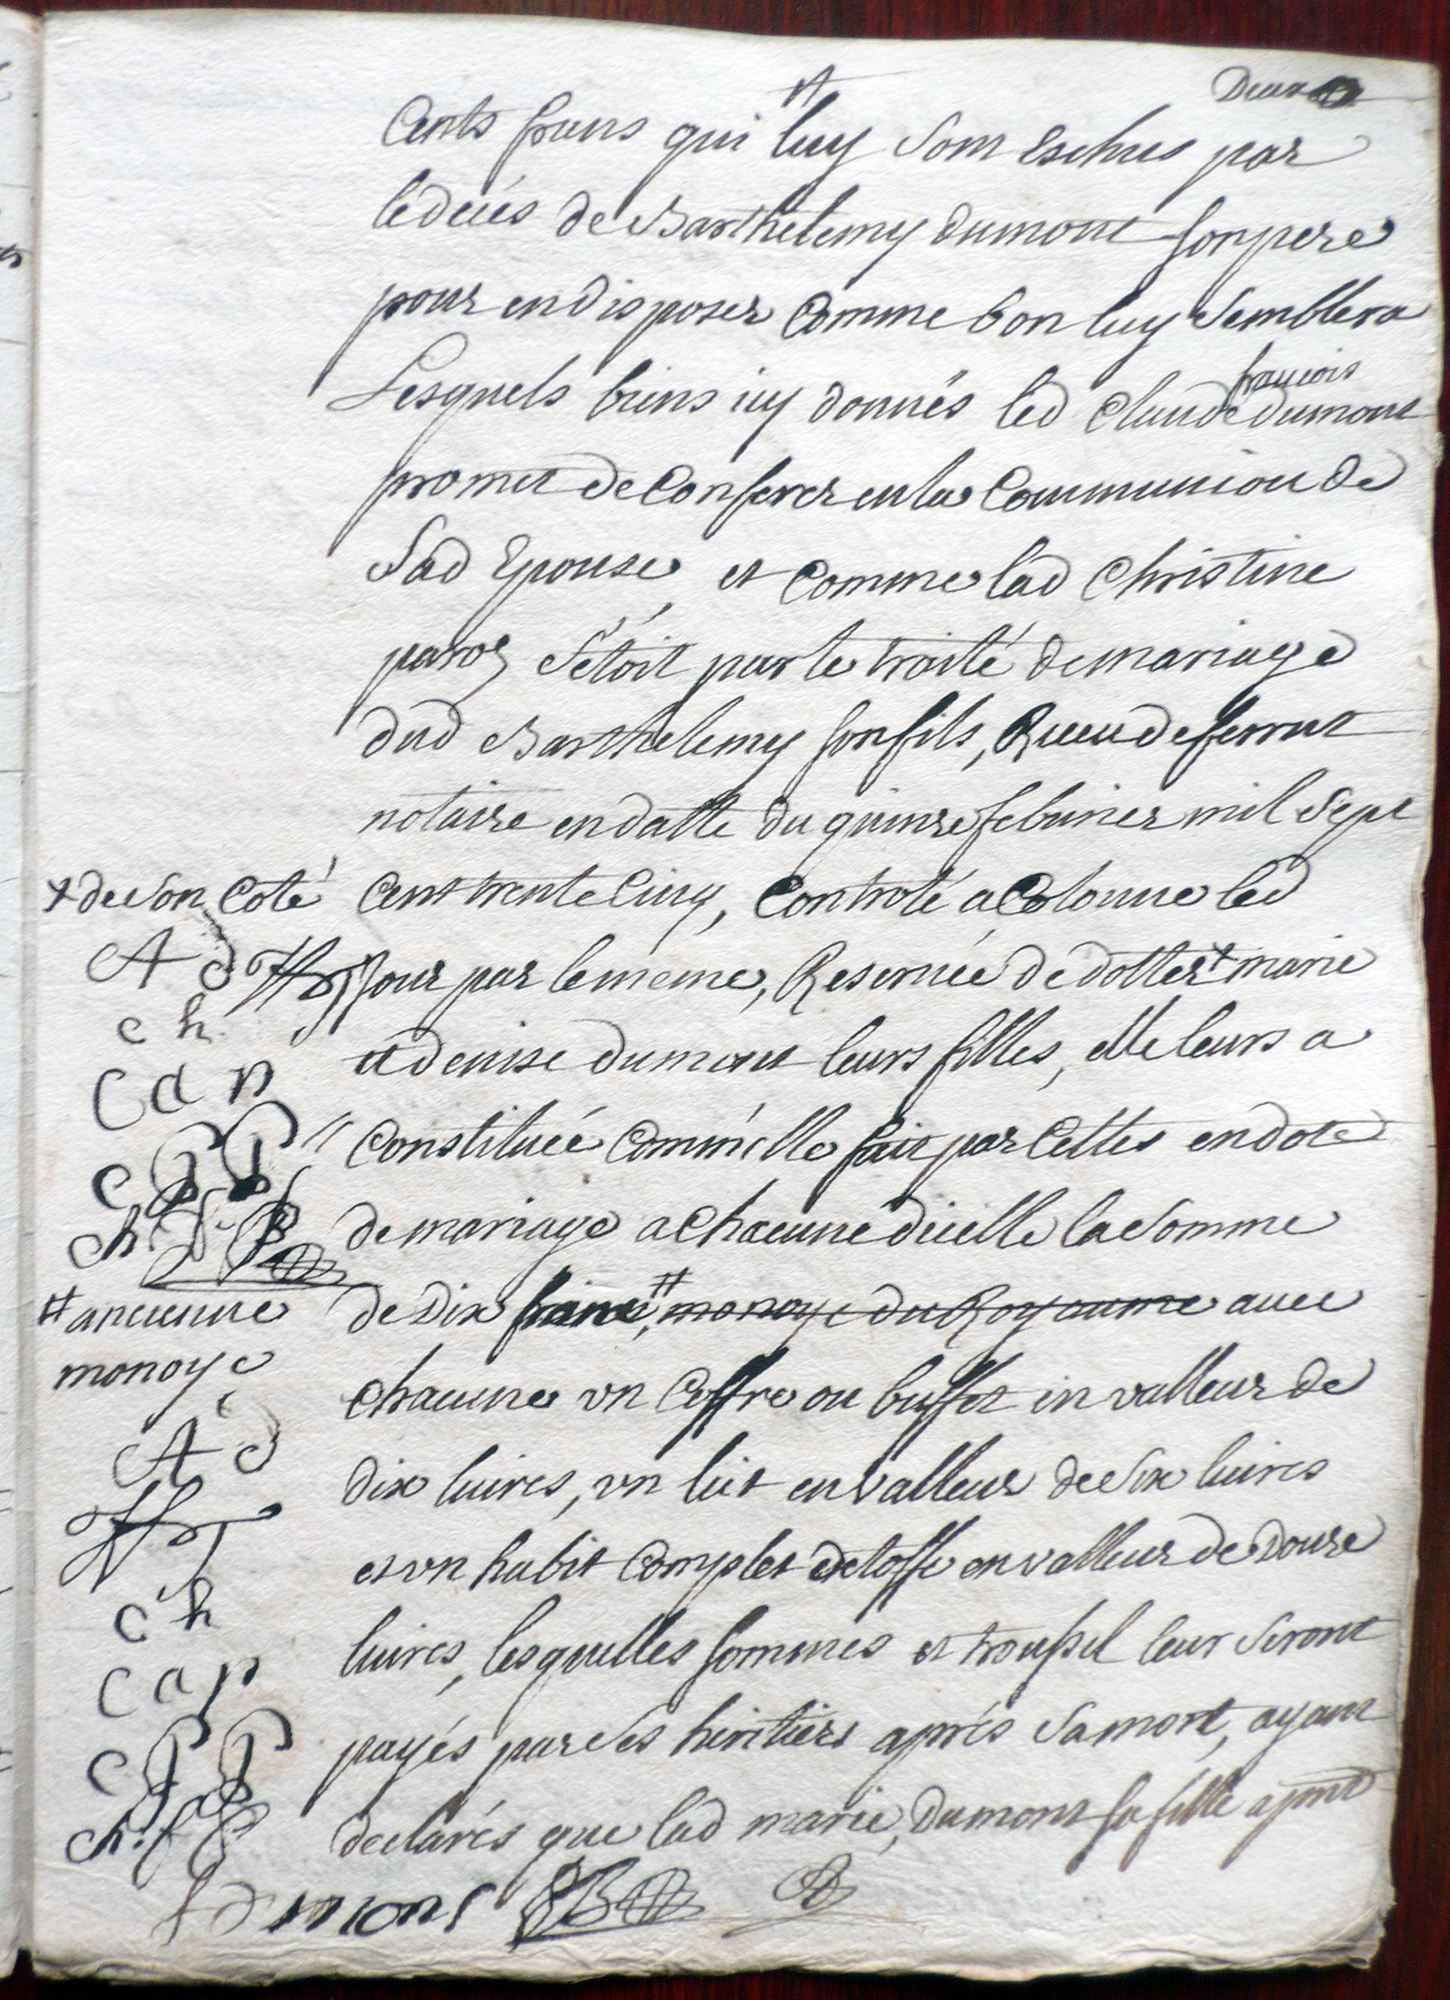 Deux
Cents frans qui luy sont Eschus par
le decés de Barthelemy dumont son pere
pour en disposer comme bon luy Semblera
Lesquels biens icy donnés led Claude françois dumont
promet de Conferer en la Communion de
Sad Epouse, et comme lad Christine
paroz S'étoit par le traité de mariage
dud Barthelemy son fils, Receu de ferrut
notaire en datte du quinze febvrier mil Sept
Cent trente Cinq, Controlé a Colonne led
Jour par le meme, Reservée de dotter + marie
et denise dumont leurs filles, elle leurs a
Constituée Comm'elle fait par Cettes en dote
de mariage a Chacune d'icelle la Somme
de Dix frans, # monoye du Royaume avec
chacune un Coffre ou buffet en valleur de
dix livres, un lict en valleur de Six livres
et un habit Complet d'etoffe en valleur de Douze
livres, lesquelles Sommes et troussel leur Seront
payés par Ses heritiers aprés Sa mort, ayant
declarés que lad marie Dumont sa fille a
+ de Son Coté
A d
c h
C d p
# ancienne
monoye
A d
c h
C a p
dumont